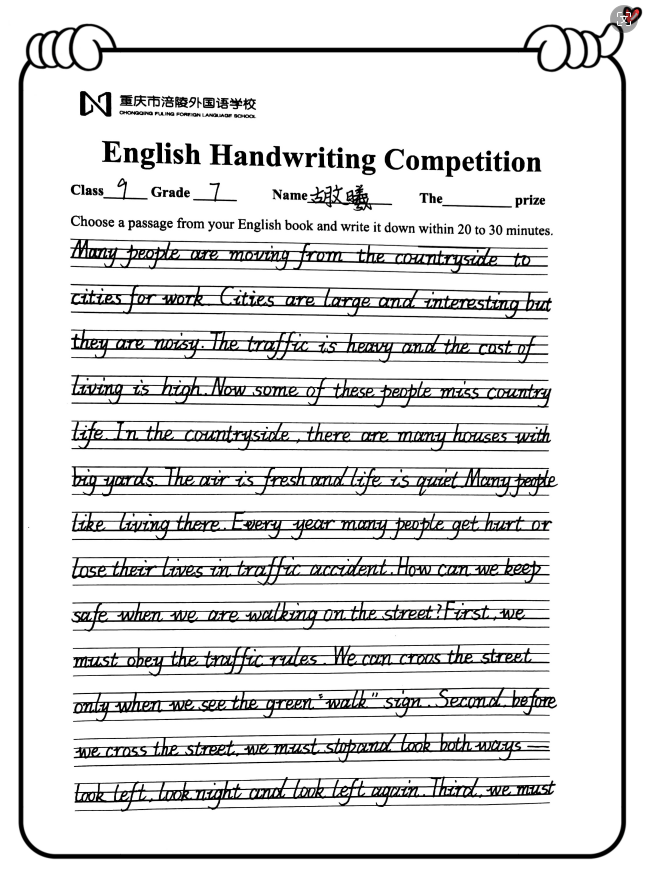 重庆市涪陵外国语学校
CHONGQING FULING FOREIGN LANGUAGE SCHOOL
English Handwriting Competition
Class 9 Grade 7 Name 胡玟曦 The______ prize
Choose a passage from your English book and write it down within 20 to 30 minutes.
Many people are moving from the countryside to
cities for work. Cities are large and interesting but
they are noisy. The traffic is heavy and the cost of
living is high. Now some of these people miss country
life. In the countryside, there are many houses with
big yards. The air is fresh and life is quiet. Many people
like living there. Every year many people get hurt or
lose their lives in traffic accident. How can we keep
safe when we are walking on the street? First, we
must obey the traffic rules. We can croos the street
only when we see the green "walk" sign. Second, before
we cross the street, we must stop and look both ways —
look left, look night and look left again. Third, we must